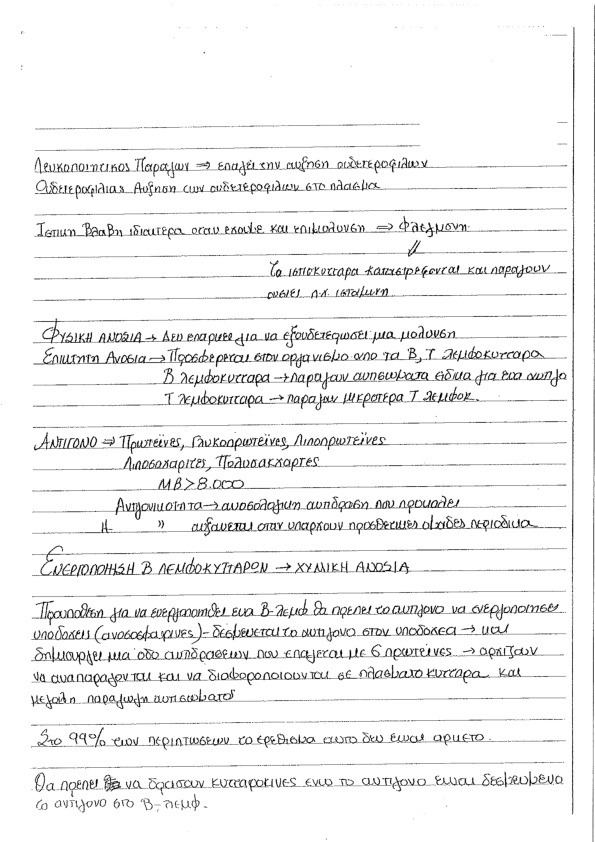 Λευκοποιητικος Παραγων ⇒ επαγει την αυξηση ουδετεροφιλων
Ουδετεροφιλια: Αυξηση των ουδετεροφιλων στο πλασμα
Ιστικη Βλαβη ιδιαιτερα οταν εχουμε και επιμολυνση ⇒ Φλεγμονη
⇓
Τα ιστιοκυτταρα καταστρεφονται και παραγουν
ουσιες π.χ. ισταμινη
ΦΥΣΙΚΗ ΑΝΟΣΙΑ → Δεν επαρκει για να εξουδετερωσει μια μολυνση
Επικτητη Ανοσια → Προσφερεται στον οργανισμο απο τα Β, Τ λεμφοκυτταρα
Β λεμφοκυτταρα → παραγουν αντισωματα ειδικα για ενα αντιγο
Τ λεμφοκυτταρα → παραγουν μικροτερα Τ λεμφοκ.
ΑΝΤΙΓΟΝΟ ⇒ Πρωτεϊνες, Γλυκοπρωτεϊνες, Λιποπρωτεϊνες
Λιποσαχαριτες, Πολυσακχαριτες
ΜΒ > 8.000
Αντιγονικοτητα → ανοσολογικη αντιδραση που προκαλει
Η " αυξανεται οταν υπαρχουν προσθετικες ομαδες περιοδικα
ΕΝΕΡΓΟΠΟΙΗΣΗ Β ΛΕΜΦΟΚΥΤΤΑΡΩΝ → ΧΥΜΙΚΗ ΑΝΟΣΙΑ
Προυποθεση για να ενεργοποιηθει ενα Β-λεμφ θα πρεπει το αντιγονο να ενεργοποιησει
υποδοχεις (ανοσοσφαιρινες) - δεσμευεται το αντιγονο στον υποδοχεα → και
δημιουργει μια οδο αντιδρασεων που επαγεται με G πρωτεινες → αρχιζουν
να αναπαραγονται και να διαφοροποιουνται σε πλασματοκυτταρα και
μεγαλη παραγωγη αντισωματος
Στο 99% των περιπτωσεων το ερεθισμα αυτο δεν ειναι αρκετο.
Θα πρεπει να δρασουν κυτταροκινες ενω το αντιγονο ειναι δεσμευμενο
το αντιγονο στο Β-λεμφ.